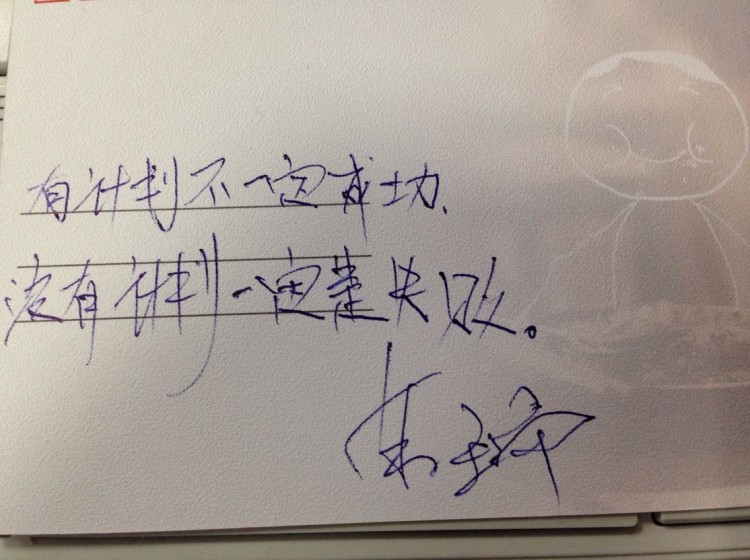 有计划不一定成功.
没有计划一定是失败。